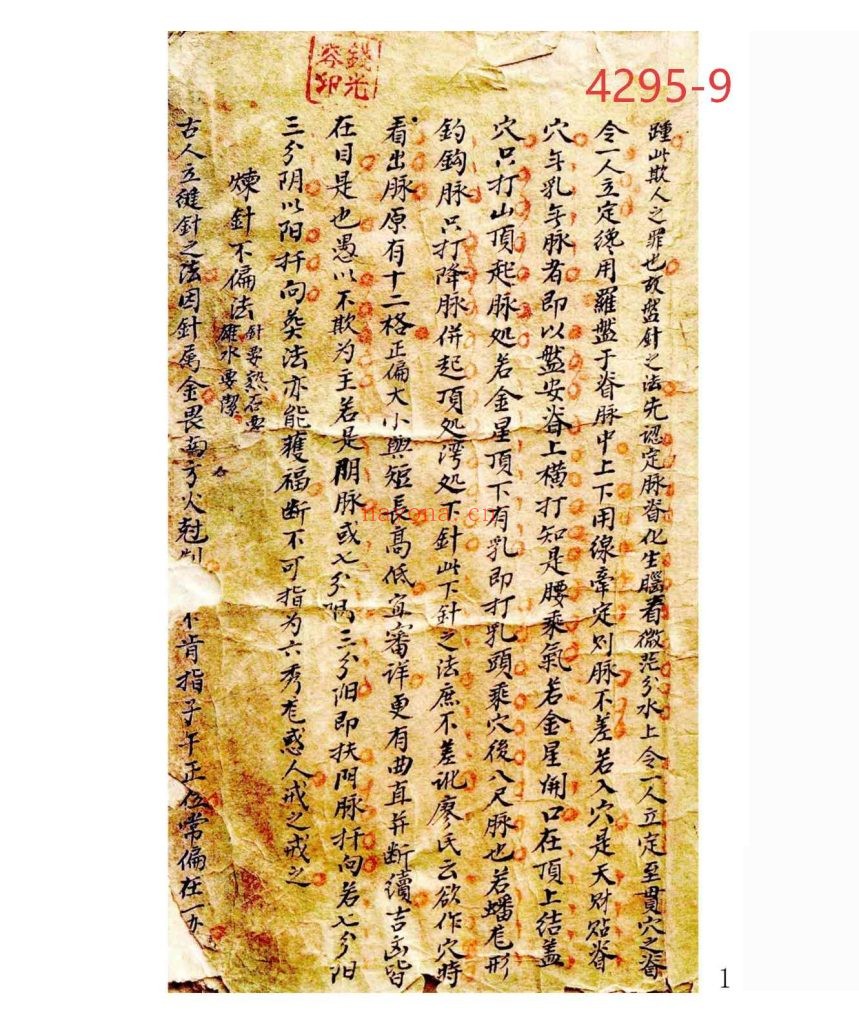 4295-9
錢光容印
踵此欺人之罪也故盤針之法先認定脉脊化生腦看微茫分水上令一人立定至貫穴之脊
令一人立定纔用羅盤于脊脉中上下用線牽定则脉不差若入穴是天财貼脊
穴无乳无脉者即以盤安脊上横打知是腰乘氣若金星開口在頂上結盖
穴只打山頂起脉处若金星頂下有乳即打乳頭乘穴後八尺脉也若蟠龙形
釣鈎脉只打降脉併起頂処湾処下針此下針之法庶不差訛廖氏云欲作穴時
看出脉原有十二格正偏大小與短長高低宜審详更有曲直并断續吉凶皆
在目是也愚以不欺为主若是阴脉或七分阴三分阳即扶阴脉扦向若七分阳
三分阴以阳扦向葵法亦能獲福断不可指为六秀龙惑人戒之戒之
煉針不偏法針要熟石要雄水要潔
古人立縫針之法因針属金畏南方火尅制不肯指子午正位常偏在一办
1